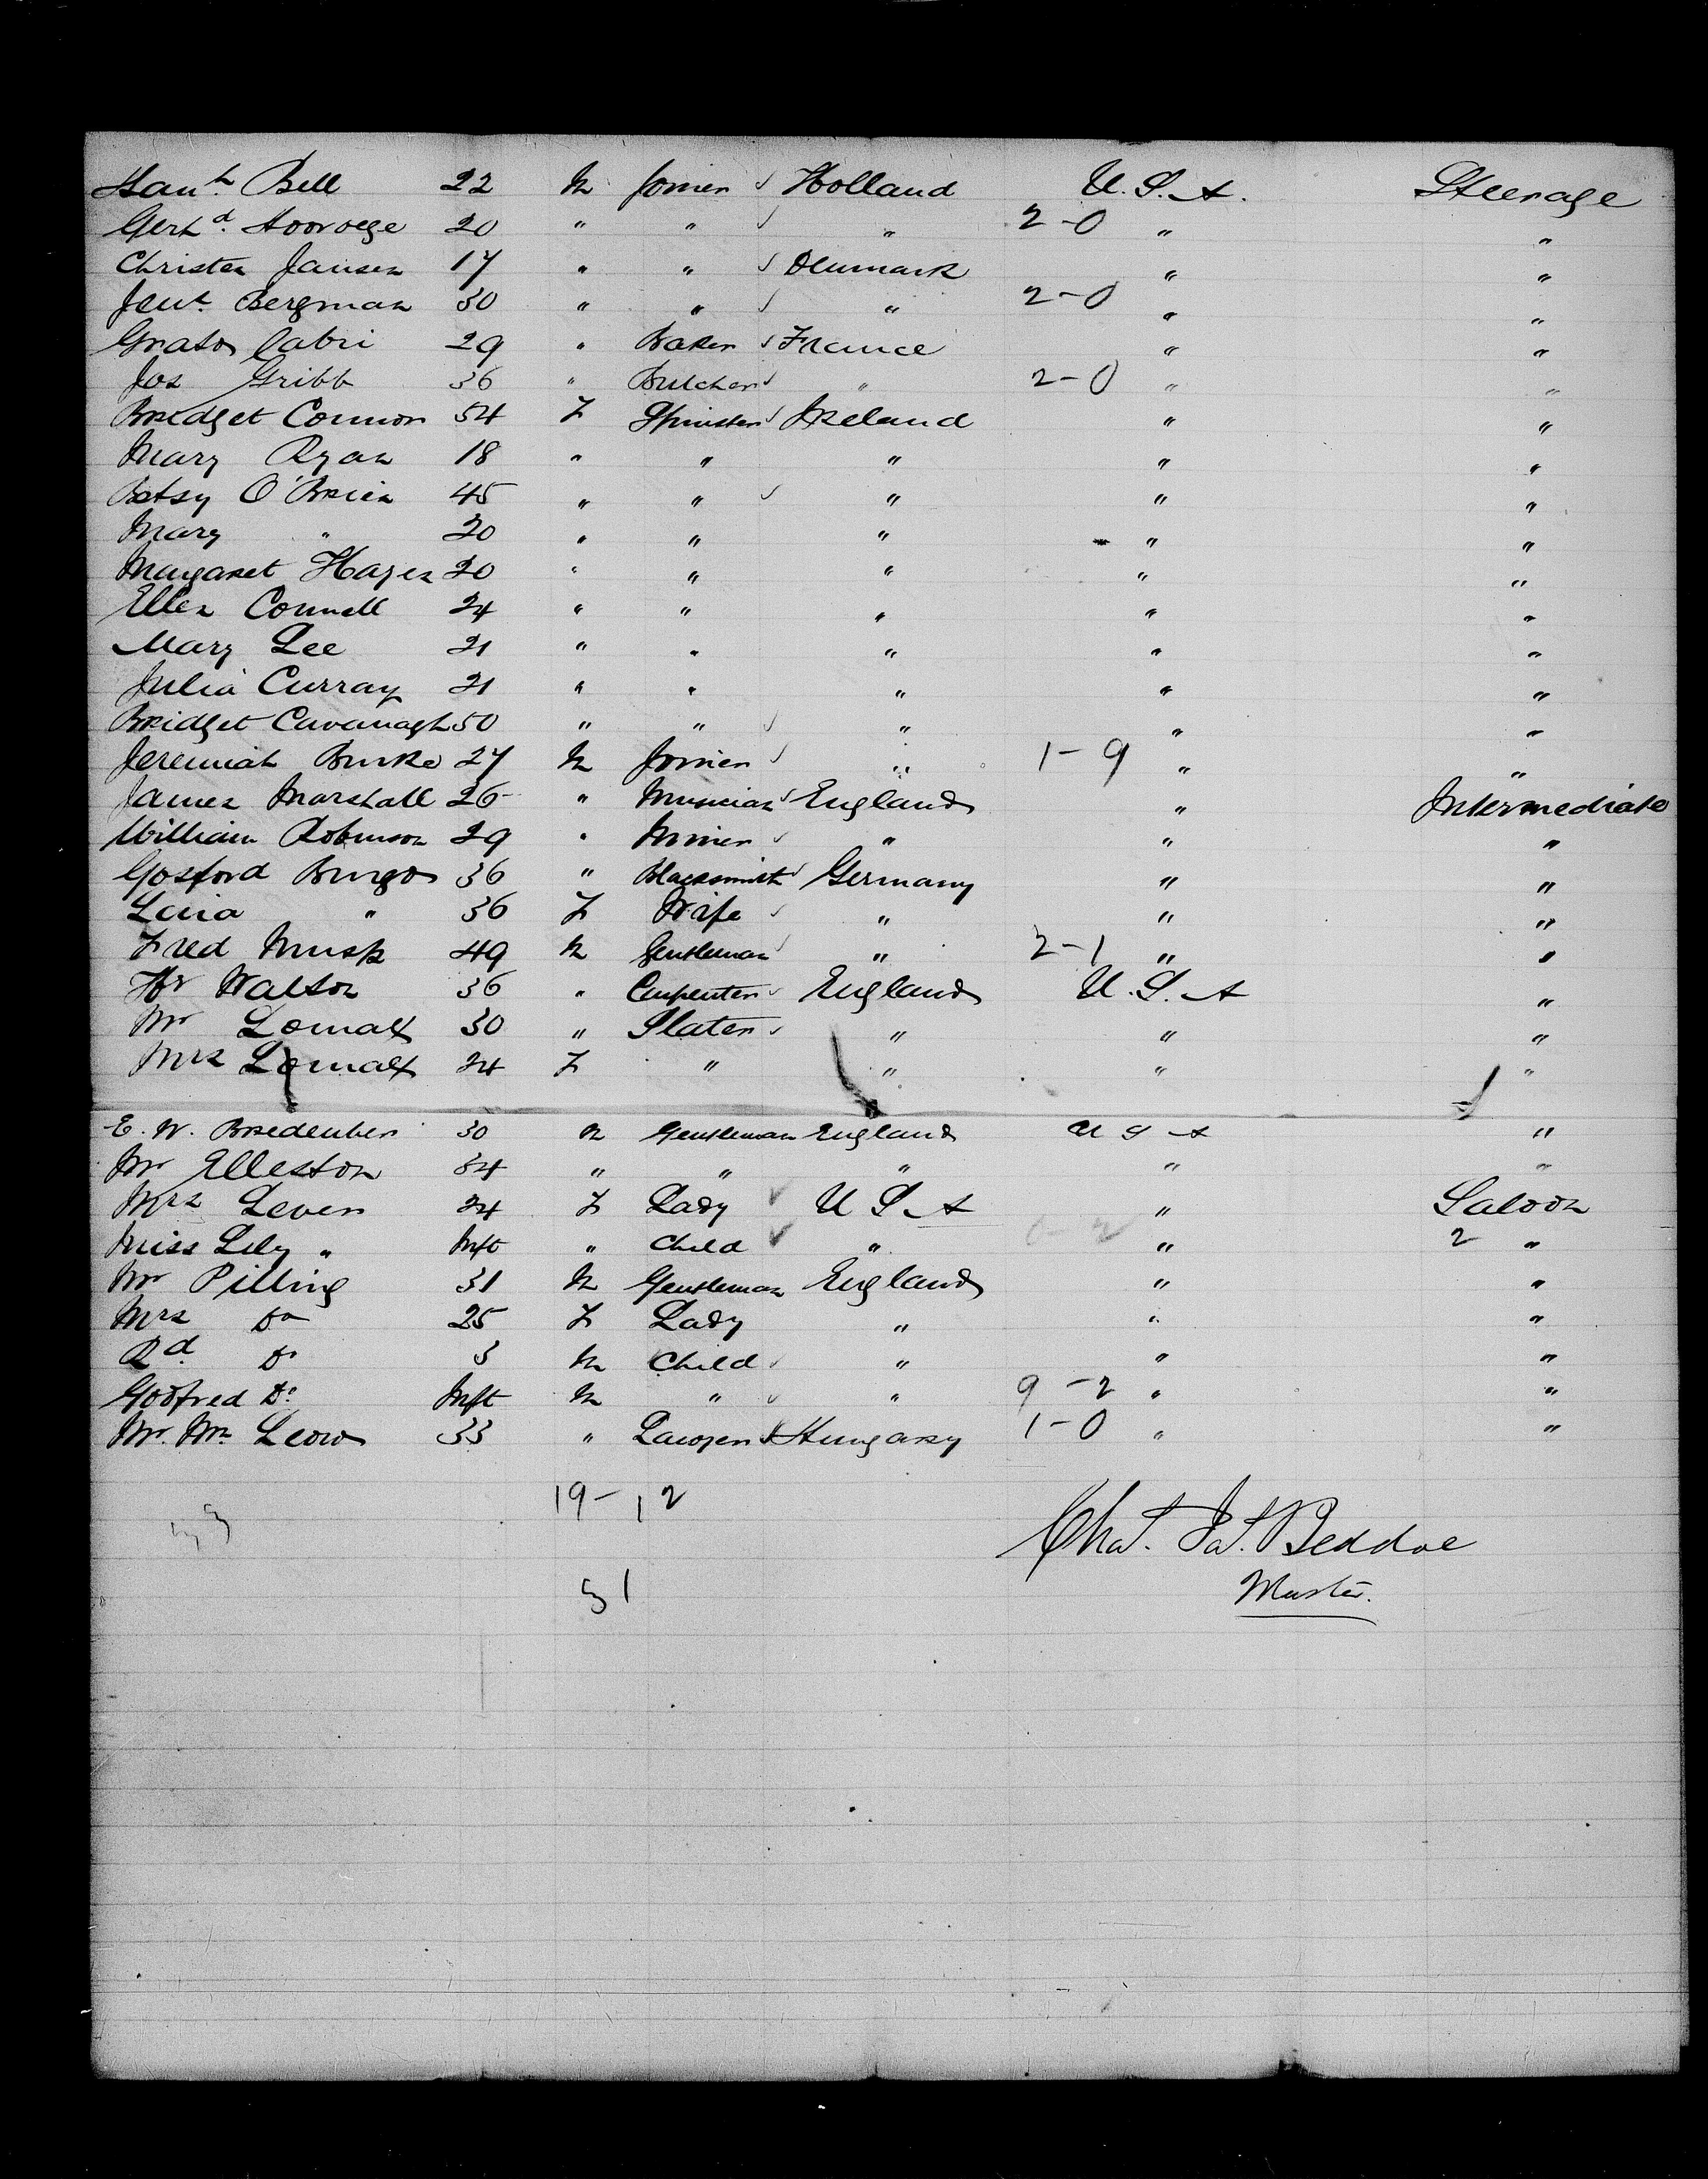 Hanh. Bell 22 M Joiner ✓ Holland U.S.A. Steerage
Gerhd. 20 " " ✓ " 2-0 " "
Christen Jansen 17 " " ✓ Denmark " "
Bergman 30 " " ✓ " 2-0 " "
Cabri 29 " Baker ✓ France " "
Jos Gribb 36 " Butcher ✓ " 2-0 " "
Bridget Connor 54 F Spinster ✓ Ireland " "
Mary Ryan 18 " " " " "
Betsy O'Brien 45 " " ✓ " " "
Mary " 20 " " " " "
Margaret Hayes 20 " " " " "
Ellen Connell 24 " " " " "
Mary Lee 21 " " " " "
Julia Curray 21 " " " " "
Bridget Cavanagh 50 " " ✓ " " "
Jeremiah Burke 27 M Joiner ✓ " 1-9 " "
James Marshall 26 " Musician ✓ England " Intermediate
William Robinson 29 " ✓ " " "
Gosford Burgos 36 " Blacksmith ✓ Germany " "
" 36 F Wife ✓ " " "
Fred Musk 49 M Gentleman ✓ " 2-1 " "
Hy Walton 36 " Carpenter ✓ England U.S.A "
Mr Lomax 30 " Slater ✓ " " "
Mrs Lomax 24 F " " " "
E. W. Bredenber 30 M Gentleman England U S A "
Mr Elleston 34 " " " " "
Mrs Lever 24 F Lady ✓ U S A " Saloon
Miss Lily " Inft " Child ✓ " 0-2 " 2 "
Mr Pilling 31 M Gentleman England " "
Mrs Do 25 F Lady " " "
Rd. Do 3 M Child ✓ " " "
Godfred Do. Inft M " ✓ " 9-2 " "
Mr. Wm. Leow 33 " Lawyer ✓ Hungary 1-0 " "
19-12
31
Chas. Jas. Beddoe
Master.